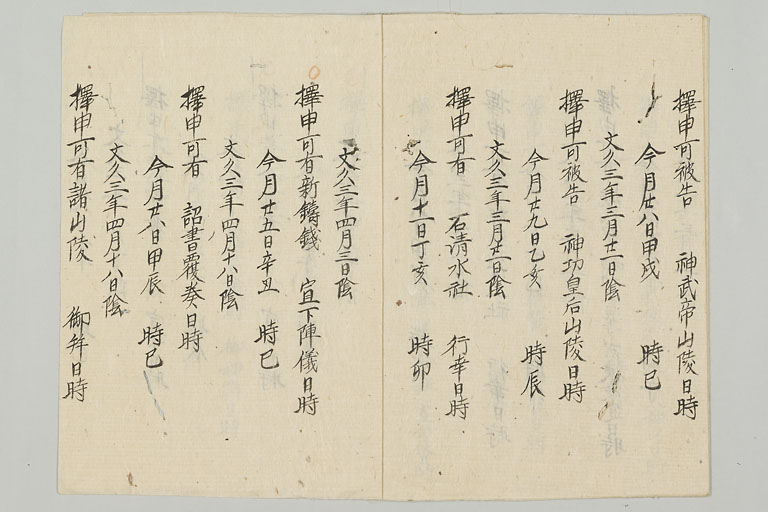 擇申可被告　神武帝山陵日時
今月廿八日甲戌　時巳
文久三年三月廿一日陰
擇申可被告　神功皇后山陵日時
今月廿九日乙亥　時辰
文久三年三月廿一日陰
擇申可有　石清水社　行幸日時
今月十一日丁亥　時卯
文久三年四月三日陰
擇申可有新鑄錢　宣下陣儀日時
今月廿五日辛丑　時巳
文久三年四月十八日陰
擇申可有　詔書覆奏日時
今月廿八日甲辰　時巳
文久三年四月十八日陰
擇申可有諸山陵　御拜日時